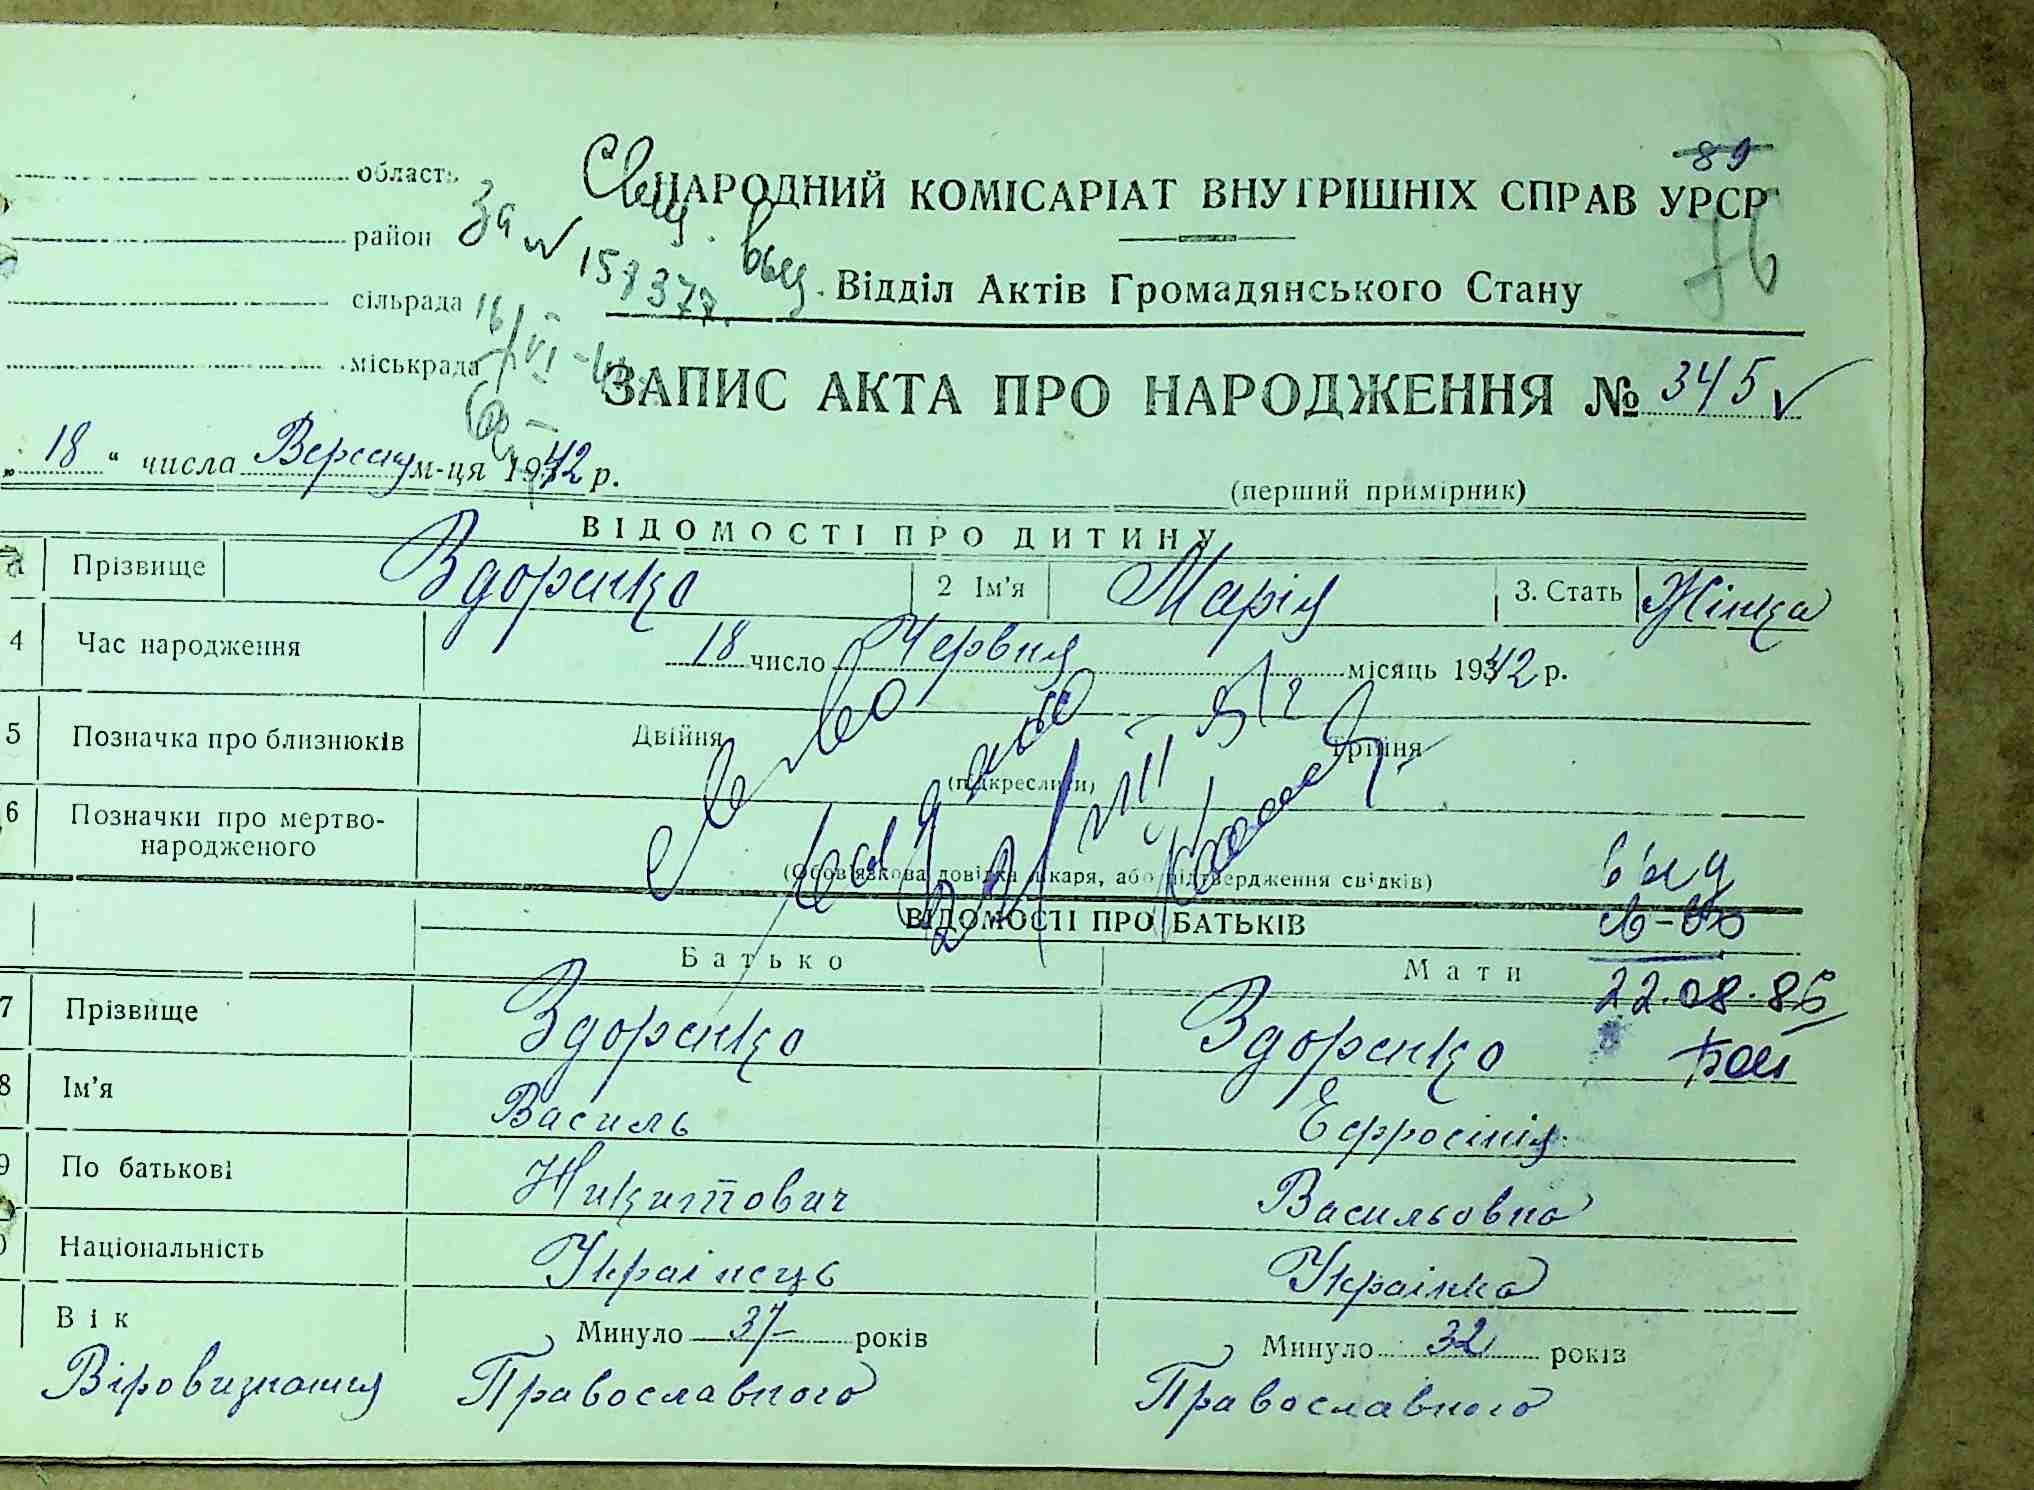 89
область
НАРОДНИЙ КОМІСАРІАТ ВНУТРІШНІХ СПРАВ УРСР
район
За № 158377
Відділ Актів Громадянського Стану
76
сільрада
міськрада
ЗАПИС АКТА ПРО НАРОДЖЕННЯ № 345
„18“ числа Вересня м-ця 1942 р.
(перший примірник)
ВІДОМОСТІ ПРО ДИТИНУ
Прізвище Здоренко 2 Ім'я Марія 3. Стать Жінка
4 Час народження 18 число Червня місяць 1942 р.
5 Позначка про близнюків Двійня Трійня
(підкреслити)
6 Позначки про мертво-
народженого
(Обов'язкова довідка лікаря, або підтвердження свідків)
ВІДОМОСТІ ПРО БАТЬКІВ
Батько Мати
22.08.86
7 Прізвище Здоренко Здоренко
8 Ім'я Василь Ефросінія
9 По батькові Никитович Васильовна
Національність Українець Українка
Вік Минуло 37 років Минуло 32 років
Віровизнання Православного Православного